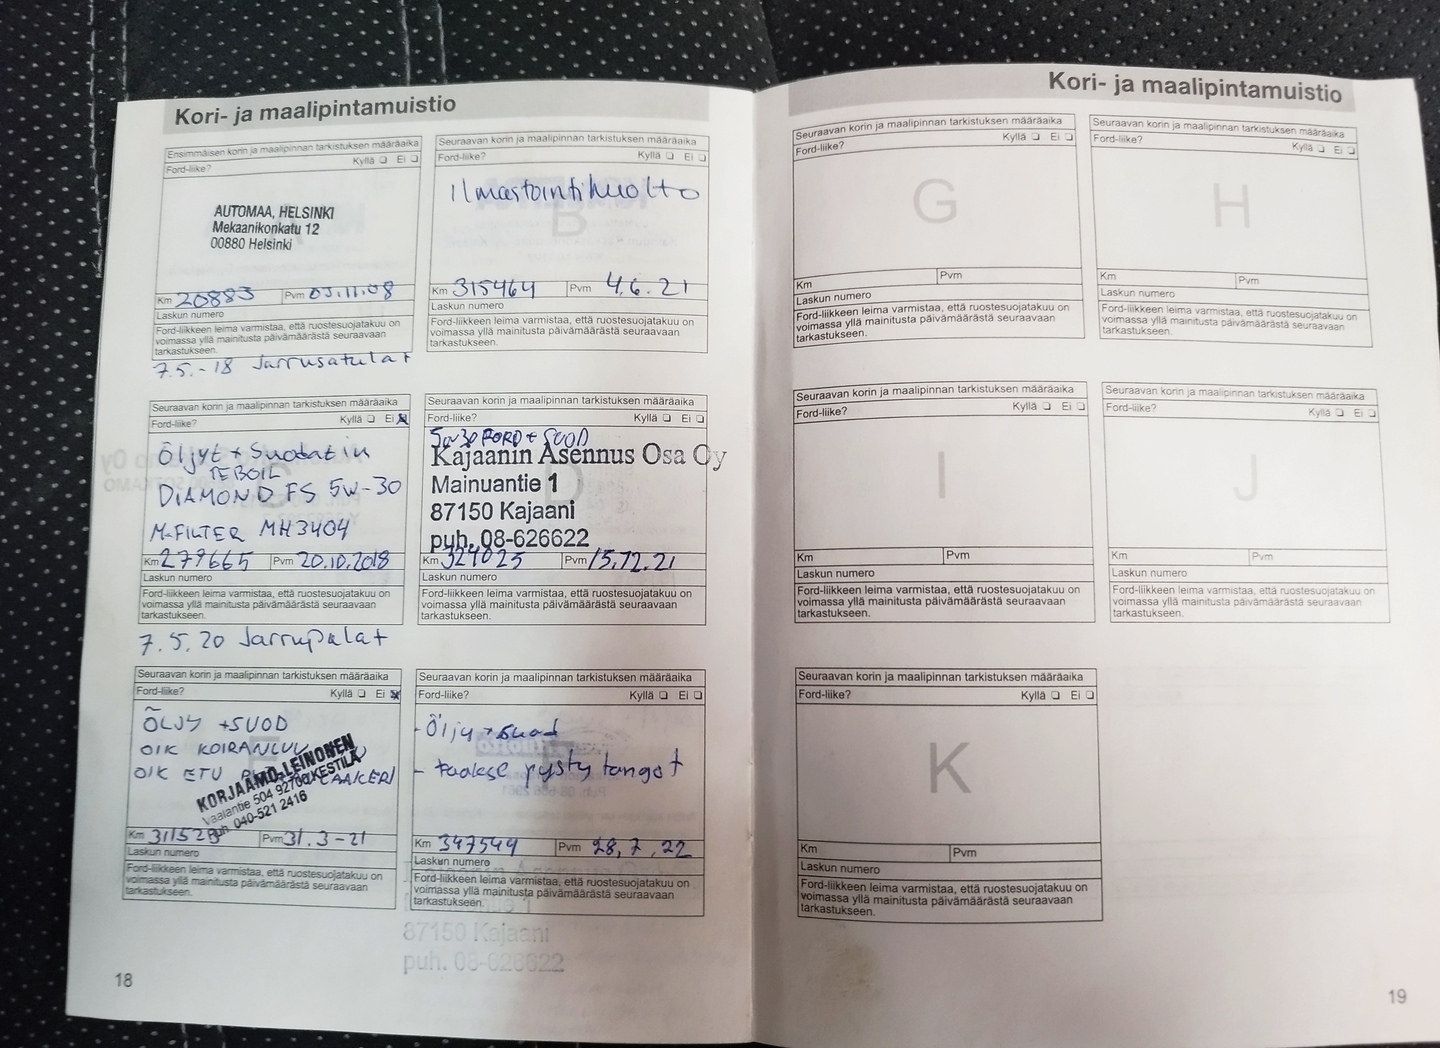 Kori- ja maalipintamuistio
Ensimmäisen korin ja maalipinnan tarkistuksen määräaika
Ford-liike? Kyllä ❏ Ei ❏
AUTOMAA, HELSINKI
Mekaanikonkatu 12
00880 Helsinki
Km 20883 Pvm 03.11.08
Laskun numero
Ford-liikkeen leima varmistaa, että ruostesuojatakuu on
voimassa yllä mainitusta päivämäärästä seuraavaan
tarkastukseen.
7.5.-18 Jarrusatulat
Seuraavan korin ja maalipinnan tarkistuksen määräaika
Ford-liike? Kyllä ❏ Ei ❏
Ilmastointihuolto
B
Km 315464 Pvm 4.6.21
Laskun numero
Ford-liikkeen leima varmistaa, että ruostesuojatakuu on
voimassa yllä mainitusta päivämäärästä seuraavaan
tarkastukseen.
Seuraavan korin ja maalipinnan tarkistuksen määräaika
Ford-liike? Kyllä ❏ Ei ☒
Öljyt + Suodatin
TEBOIL
DIAMOND FS 5W-30
M-FILTER MH3404
Km 279665 Pvm 20.10.2018
Laskun numero
Ford-liikkeen leima varmistaa, että ruostesuojatakuu on
voimassa yllä mainitusta päivämäärästä seuraavaan
tarkastukseen.
7.5.20 Jarrupalat
Seuraavan korin ja maalipinnan tarkistuksen määräaika
Ford-liike? Kyllä ❏ Ei ❏
5w30 FORD + SUOD
Kajaanin Asennus Osa Oy
Mainuantie 1
87150 Kajaani
puh. 08-626622
D
Km 324025 Pvm 15.12.21
Laskun numero
Ford-liikkeen leima varmistaa, että ruostesuojatakuu on
voimassa yllä mainitusta päivämäärästä seuraavaan
tarkastukseen.
Seuraavan korin ja maalipinnan tarkistuksen määräaika
Ford-liike? Kyllä ❏ Ei ☒
ÖLJY + SUOD
OIK KOIRANLUU
OIK ETU
KORJAAMO LEINONEN
Vaalantie 504 92700 KESTILÄ
Puh. 040-521 2416
Km 311528 Pvm 31.3-21
Laskun numero
Ford-liikkeen leima varmistaa, että ruostesuojatakuu on
voimassa yllä mainitusta päivämäärästä seuraavaan
tarkastukseen.
Seuraavan korin ja maalipinnan tarkistuksen määräaika
Ford-liike? Kyllä ❏ Ei ❏
- Öljy + suod
- taakse pystytangot
Km 347544 Pvm 28.7.22
Laskun numero
Ford-liikkeen leima varmistaa, että ruostesuojatakuu on
voimassa yllä mainitusta päivämäärästä seuraavaan
tarkastukseen.
87150 Kajaani
puh. 08-626622
18
Kori- ja maalipintamuistio
Seuraavan korin ja maalipinnan tarkistuksen määräaika
Ford-liike? Kyllä ❏ Ei ❏
G
Km Pvm
Laskun numero
Ford-liikkeen leima varmistaa, että ruostesuojatakuu on
voimassa yllä mainitusta päivämäärästä seuraavaan
tarkastukseen.
Seuraavan korin ja maalipinnan tarkistuksen määräaika
Ford-liike? Kyllä ❏ Ei ❏
H
Km Pvm
Laskun numero
Ford-liikkeen leima varmistaa, että ruostesuojatakuu on
voimassa yllä mainitusta päivämäärästä seuraavaan
tarkastukseen.
Seuraavan korin ja maalipinnan tarkistuksen määräaika
Ford-liike? Kyllä ❏ Ei ❏
I
Km Pvm
Laskun numero
Ford-liikkeen leima varmistaa, että ruostesuojatakuu on
voimassa yllä mainitusta päivämäärästä seuraavaan
tarkastukseen.
Seuraavan korin ja maalipinnan tarkistuksen määräaika
Ford-liike? Kyllä ❏ Ei ❏
J
Km Pvm
Laskun numero
Ford-liikkeen leima varmistaa, että ruostesuojatakuu on
voimassa yllä mainitusta päivämäärästä seuraavaan
tarkastukseen.
Seuraavan korin ja maalipinnan tarkistuksen määräaika
Ford-liike? Kyllä ❏ Ei ❏
K
Km Pvm
Laskun numero
Ford-liikkeen leima varmistaa, että ruostesuojatakuu on
voimassa yllä mainitusta päivämäärästä seuraavaan
tarkastukseen.
19